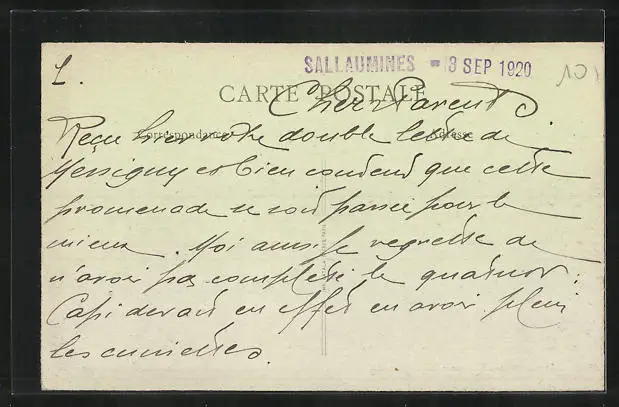 1.
SALLAUMINES - 8 SEP 1920
CARTE POSTALE
Chers Parents
Correspondance
Adresse
Reçu hier votre double lettre de
Messigny et bien content que cette
promenade se soit passée pour le
mieux. Moi aussi je regrette de
n'avoir pas complété le quatuor :
Capi devait en effet en avoir plein
les cunettes.